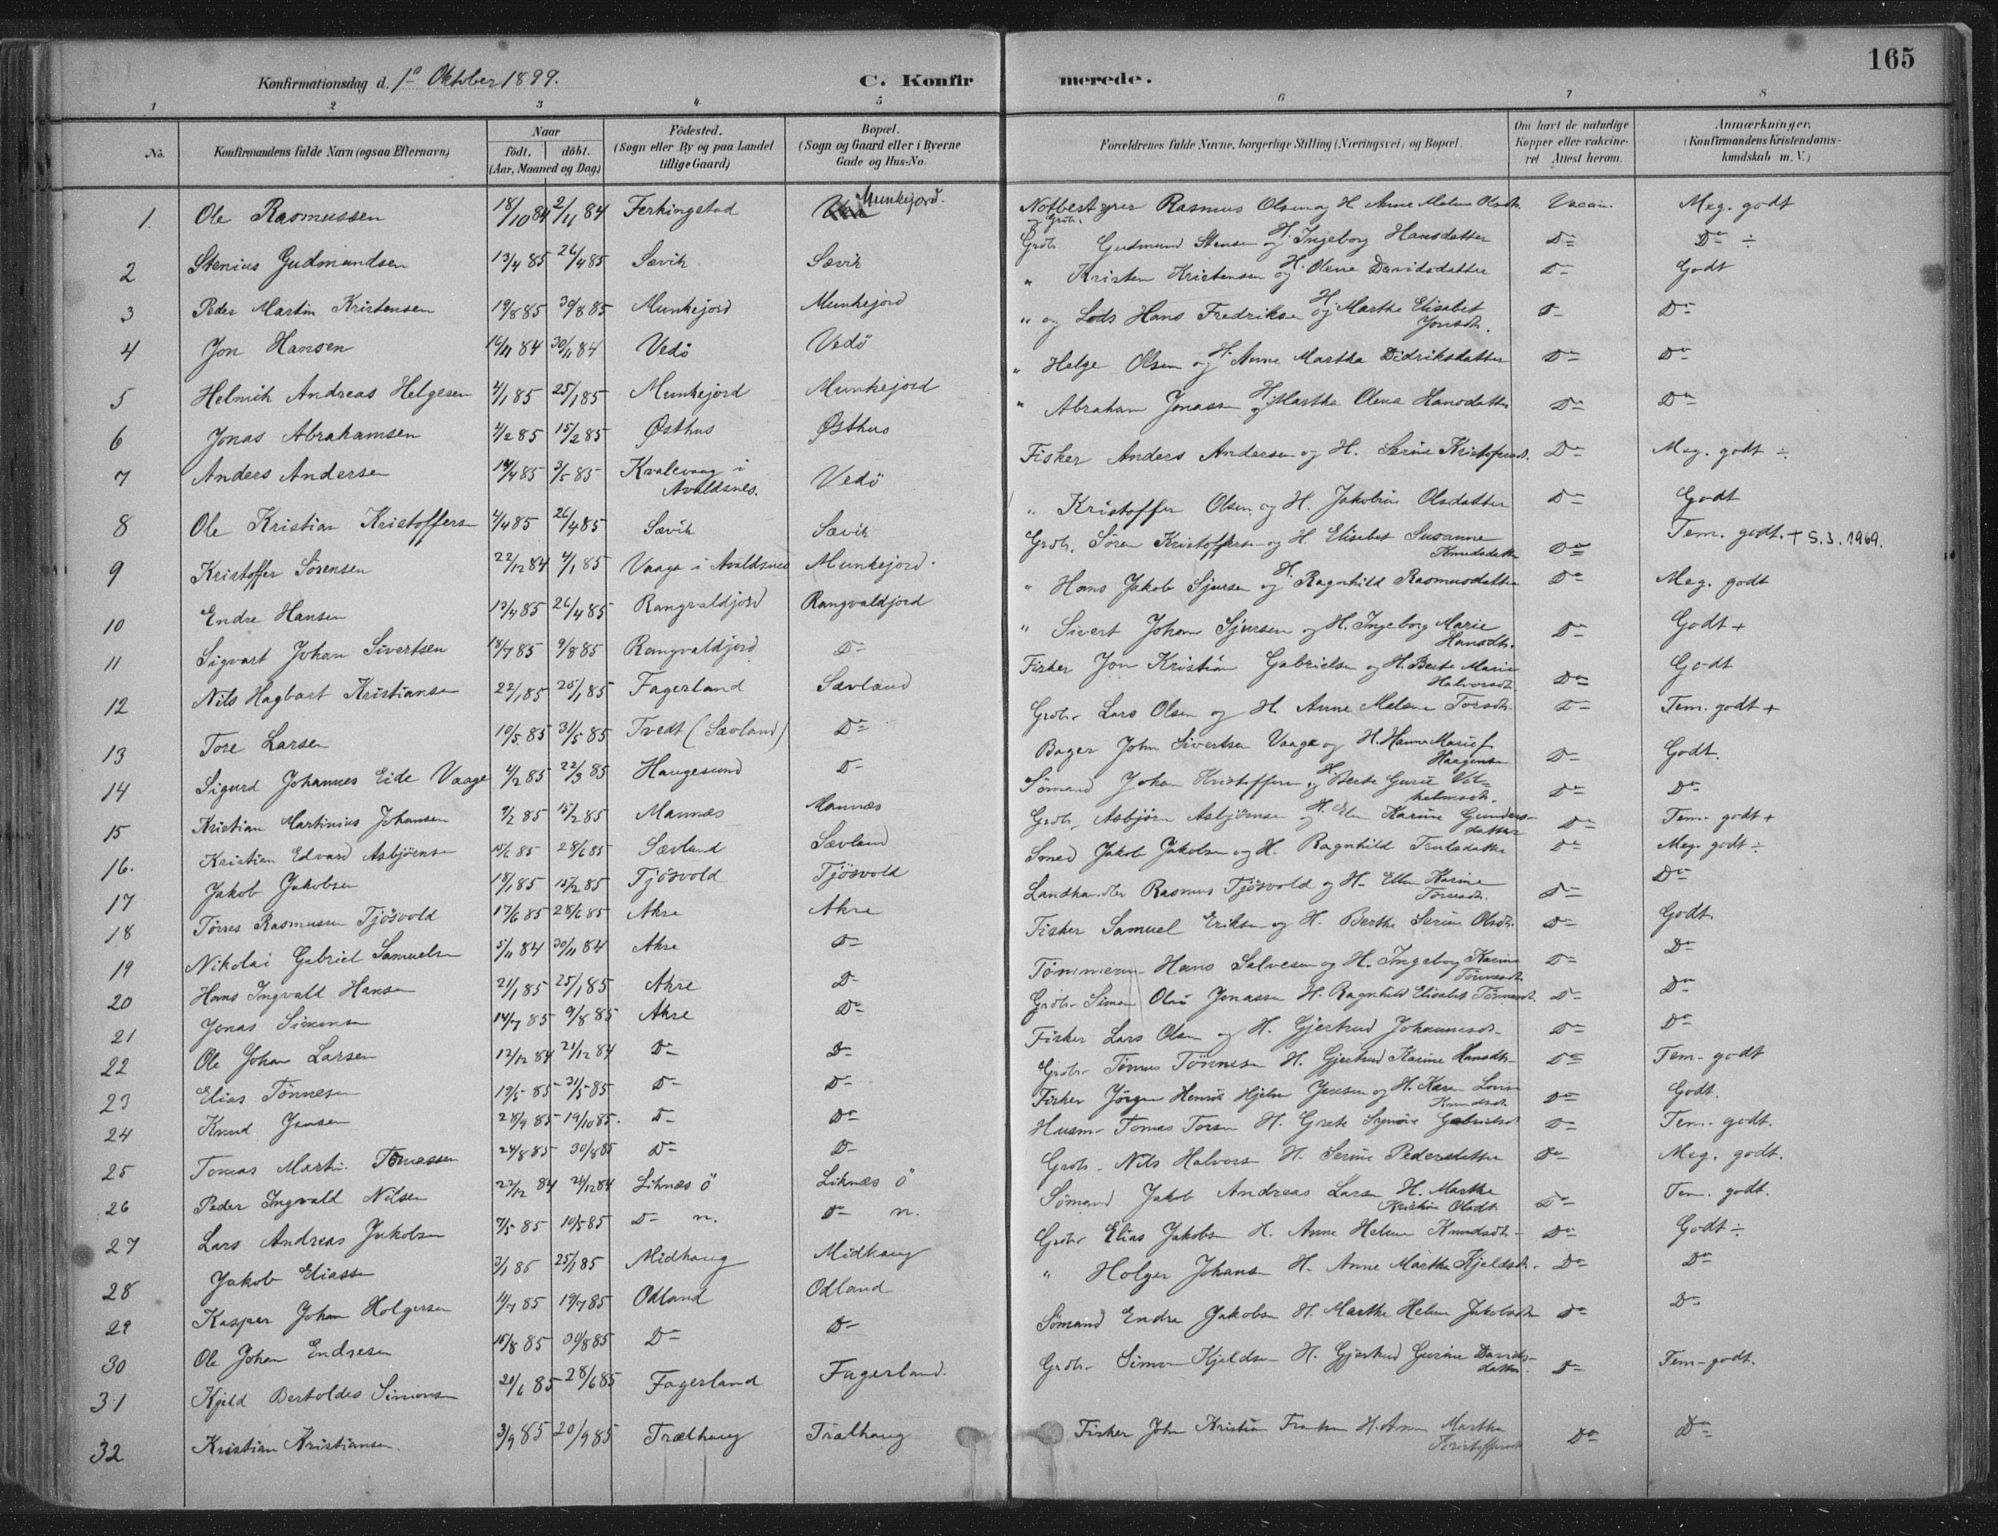 165
Konfirmationsdag d. 1ste Oktober 1899. C. Konfirmerede.
1 2 3 4 5 6 7 8
No. Konfirmandens fulde Navn (ogsaa Efternavn) Naar födt, döbt. (Aar, Maaned og Dag) Födested. (Sogn eller By og paa Landet tillige Gaard) Bopæl. (Sogn og Gaard eller i Byerne Gade og Hus-No. Forældrenes fulde Navne, borgerlige Stilling (Næringsvei) og Bopæl. Om havt de naturlige Kopper eller vaccineret. Attest herom. Anmærkninger. (Konfirmandens Kristendomskundskab m. V.)
1. Ole Rasmussen 18/10 84 2/11 84 Ferkingstad Munkejord. Notbestyrer og Grdbr. Rasmus Olsen og H. Anne Malene Olsdtr. Vaccin. Meg. godt
2 Stenius Gudmundsen 13/4 85 26/4 85 Sævik Sævik Grdb. Gudmund Stensen og H. Ingeborg Hansdatter Do Do ÷
3 Peder Martin Kristensen 19/8 85 30/8 85 Munkejord Munkejord " Kristen Kristensen og H. Olene Davidsdatter Do Godt
4 Jon Hansen 16/11 84 30/11 84 Vedö Vedö " og Lods Hans Fredriksen og H. Martha Elisabet Jonsdt. Do Do
5 Helmik Andreas Helgesen 4/1 85 25/1 85 Munkejord Munkejord " Helge Olsen og H. Anne Martha Didriksdatter Do Do
6 Jonas Abrahamsen 4/2 85 15/2 85 Østhus Østhus " Abraham Jonassen og H. Martha Olena Hansdatter Do Do
7 Anders Andersen 14/4 85 3/5 85 Kvalevaag i Avaldsnes. Vedö Fisker Anders Andersen og H. Serine Kristoffersdt. Do Meg. godt ÷
8 Ole Kristian Kristoffersen 4/4 85 26/4 85 Sævik Sævik " Kristoffer Olsen og H. Jakobine Olsdatter Do Godt
9 Kristoffer Sörensen 22/12 84 4/1 85 Vaage i Avaldsnes Munkejord. Grdb. Sören Kristoffersen og H. Elisabet Susanne Knudsdatter Do Tem. godt. + 5.3.1969.
10 Endre Hansen 13/4 85 26/4 85 Rangvaldjord Rangvaldjord " Hans Jakob Sjursen og H. Ragnhild Rasmusdatter Do Meg. godt
11 Sigvart Johan Sivertsen 14/7 85 9/8 85 Rangvaldjord Do " Sivert Johan Sjursen og H. Ingeborg Marie Hansdt. Do Godt +
12 Nils Hagbart Kristiansen 22/1 85 25/1 85 Fagerland Sævland Fisker Jon Kristian Gabrielsen og H. Berte Marie Halvorsdt. Do Godt
13 Tore Larsen 10/5 85 31/5 85 Tvedt (Sævland) Do Grdbr. Lars Olsen og H. Anne Malene Torsdt. Do Tem. godt +
14 Sigurd Johannes Eide Vaage 4/2 85 22/3 85 Haugesund Do Bager John Sivertsen Vaage og H. Hanna Marie f. Haagensen Do Godt.
15 Kristian Martinius Johansen 9/2 85 15/2 85 Mannæs Mannæs Sömand Johan Kristoffersen og H. Berte Gurie Do Do
16. Kristian Edvard Asbjörnsen 15/6 85 28/6 85 Sævland Sævland Grdb. Asbjörn Asbjörnsen og H. Elen Karine Gundersdatter Do Tem. godt +
17 Jakob Jakobsen 18/1 85 15/2 85 Tjösvold Tjösvold Smed Jakob Jakobsen og H. Ragnhild Truelsdatter Do Meg. godt ÷
18 Törres Rasmussen Tjösvold 17/6 85 28/6 85 Akre Akre Landhandler Rasmus Tjösvold og H. Ellen Karine Torresdt. Do Do
19 Nikolai Gabriel Samuelsen 5/11 84 30/11 84 Akre Do Fisker Samuel Eriksen og H. Berthe Serine Olsdt. Do Godt.
20 Hans Ingvald Hansen 21/1 85 25/1 85 Akre Do Tömmerm. Hans Salvesen og H. Ingeborg Karine Tönnesdt. Do Do
21 Jonas Simonsen 14/7 85 9/8 85 Akre Do Grdbr. Simon Olai Jonassen H. Ragnhild Elisabet Tönnesdt. Do Do
22 Ole Johan Larsen 12/12 84 21/12 84 Do Do Fisker Lars Olsen og H. Gjertrud Johannesdt. Do Do
23 Elias Tönnesen 19/5 85 31/5 85 Do Do Grdbr. Tönnes Tönnesen H. Gjertrud Karine Hansdt. Do Tem. godt
24 Knud Jensen 28/9 85 19/10 85. Do Do Fisker Jörgen Henrik Hjelm Jensen og H. Karen Lovise Knudsdt. Do Godt.
25 Tomas Martin Tomassen 24/8 85 30/8 85 Do Do Husm. Tomas Torsen H. Grete Synöve Gabrielsdt Do Tem. godt.
26 Peder Ingvald Nilsen 22/12 84 26/12 84 Liknæs ö Liknæs ö Grdb. Nils Halvors H. Serine Pedersdatter Do Meg. godt.
27 Lars Andreas Jakobsen 7/5 85 10/5 85 Do n. Do n. Sömand Jakob Andreas Larsen H. Marthe Kristine Olsdt. Do Tem. godt.
28 Jakob Eliassen 3/1 85 25/1 85 Midhaug Midhaug Grdbr. Elias Jakobsen H. Anne Helene Knudsdt. Do Godt ÷
29 Kasper Johan Holgersen 11/7 85 19/7 85 Odland Odland " Holger Johans H. Anne Martha Kjeldsdt. Do Do
30 Ole Johan Endresen 15/8 85 30/8 85 Do Do Sömand Endre Jakobsen H. Marthe Helene Jakobsdt Do Do
31 Kjeld Bertoldes Simonsen 20/6 85 28/6 85 Fagerland Fagerland. Grdbr. Simon Kjeldsen H. Gjertrud Gurine Davidsdatter. Do Tem. godt.
32 Kristian Kristiansen. 3/9 85 20/9 85 Trælhaug Trælhaug Fisker John Kristian H. Anne Martha Kristoffersdt Do Do